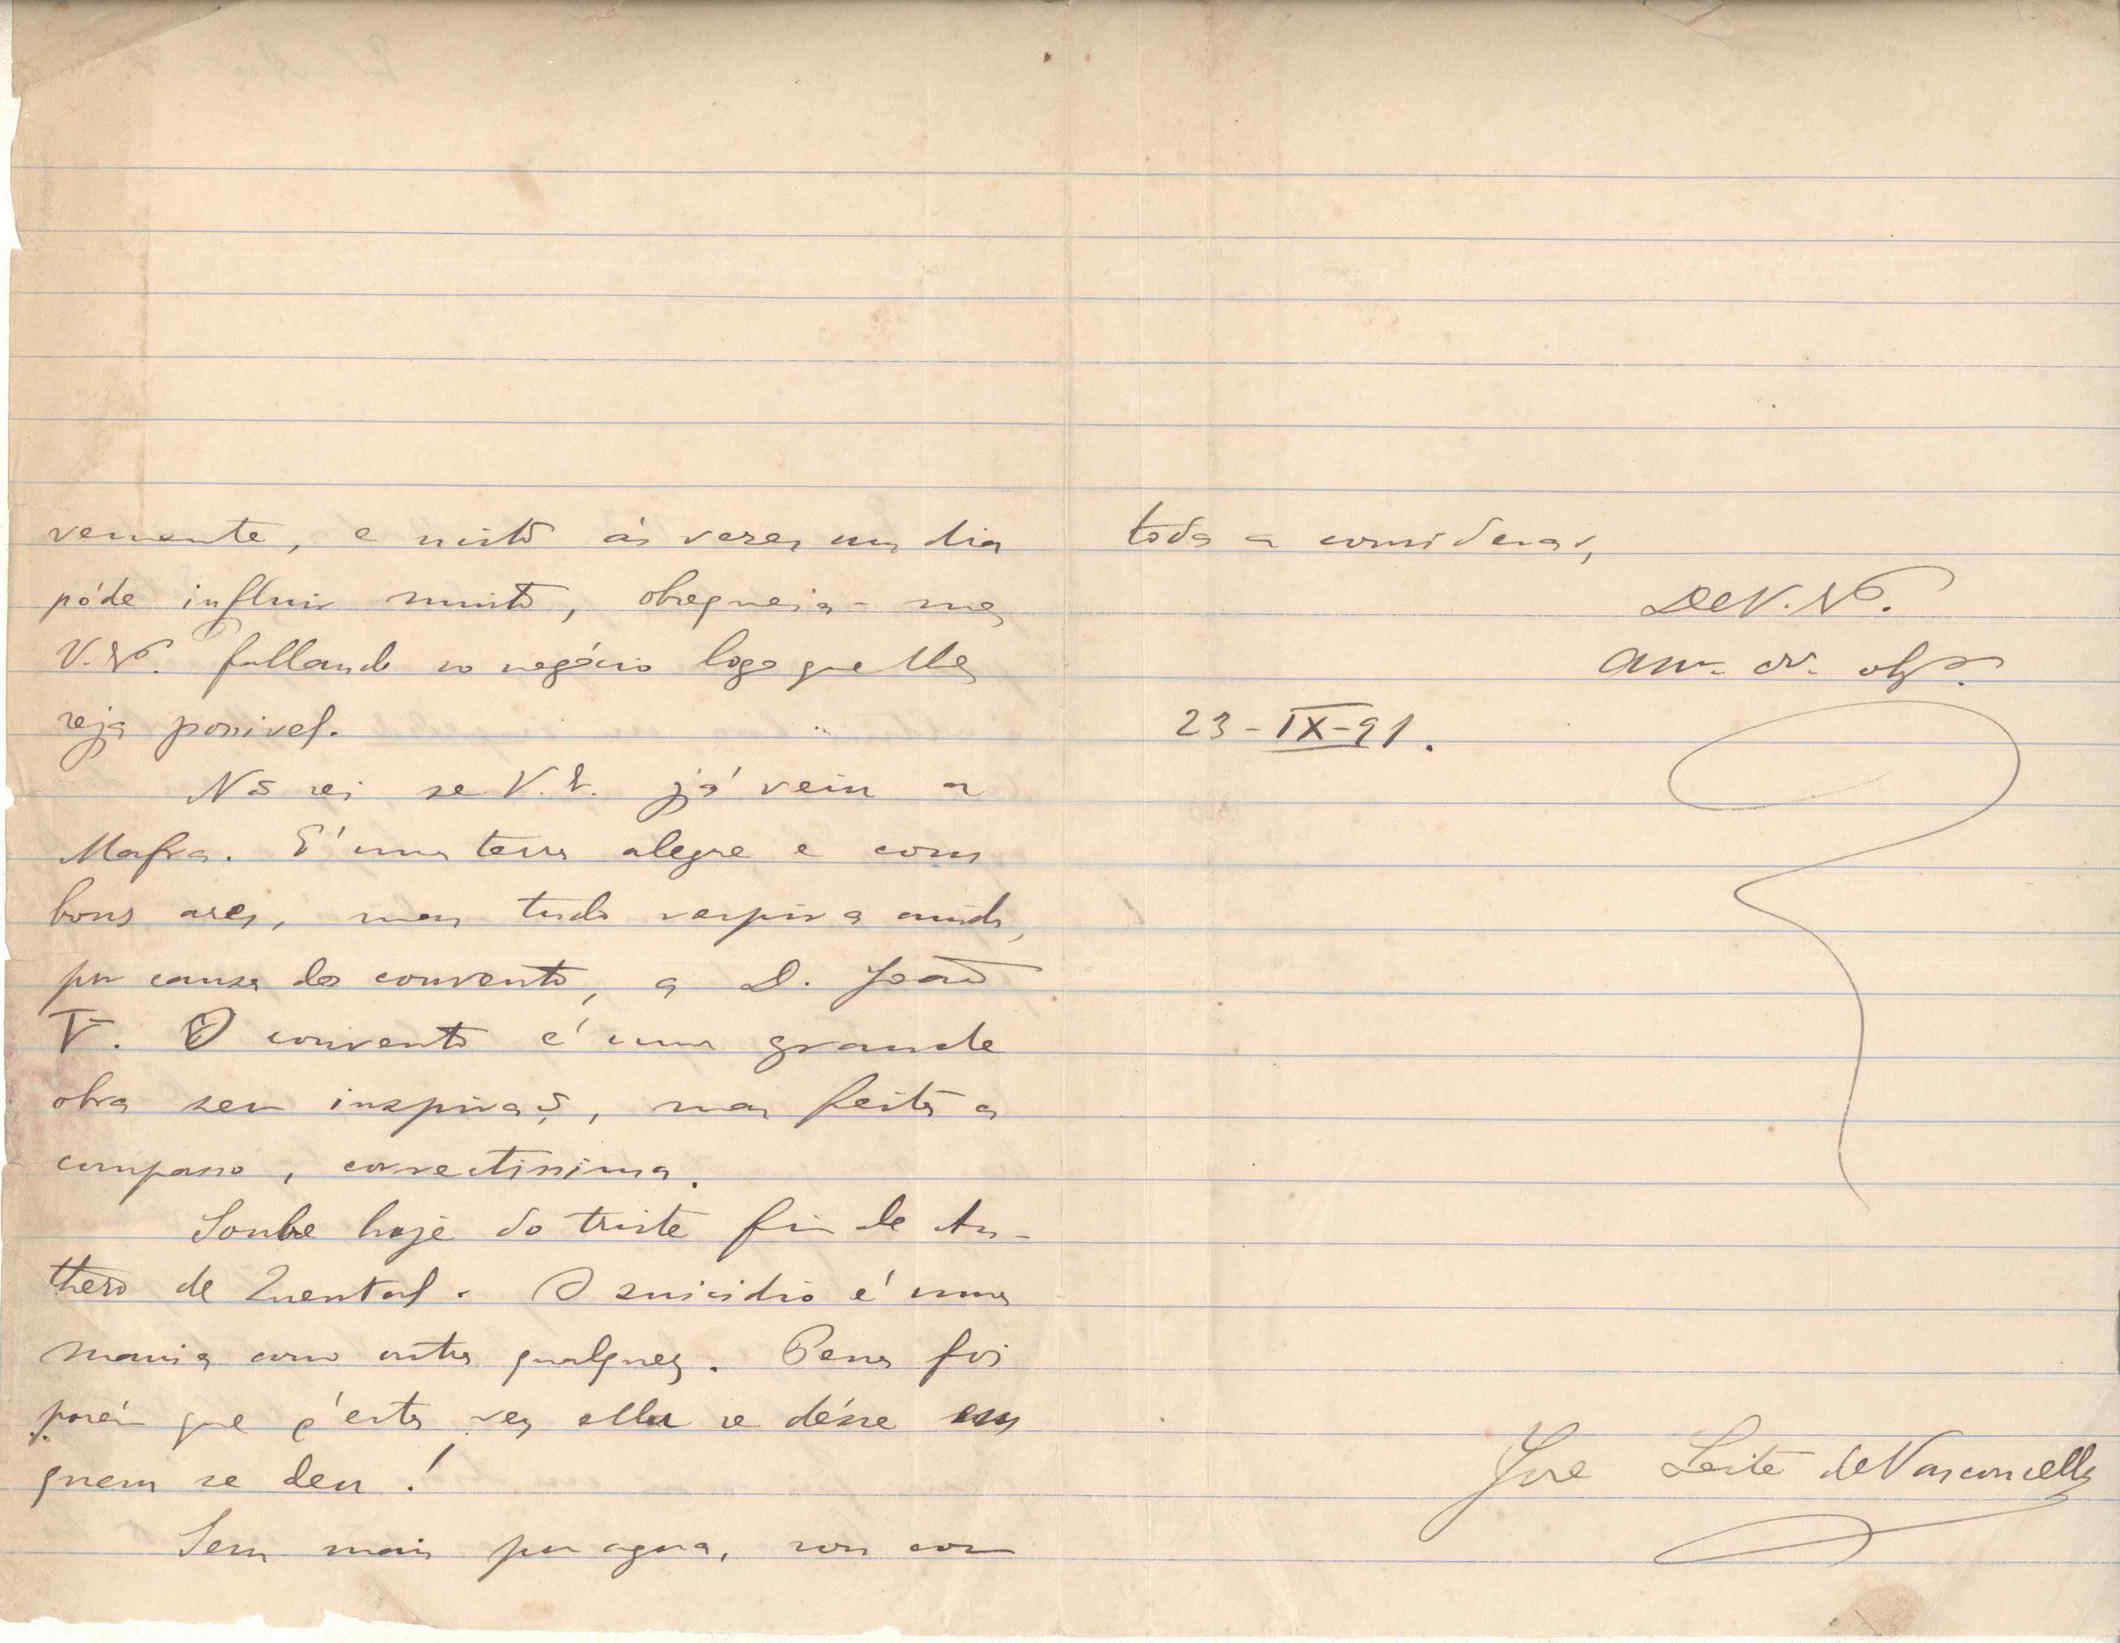 vemente, e nisto ás vezes um dia
póde influir muito, obsequeia-me
V. Ex.ª fallando no negócio logo que lhe
seja possivel.
Não sei se V. E. já veiu a
Mafra. É uma terra alegre e com
bons ares, mas tudo respira ainda,
por causa do convento, a D. João
V. O convento é uma grande
obra sem inspiração, mas feita a
compasso, correctissima.
Soube hoje do triste fim de An-
thero de Quental. O suicidio é uma
mania como outra qualquer. Pena foi
porém que d'esta vez ella se désse em
quem se deu!
Sem mais por agora, sou com
toda a consideração,
De V. Ex.ª
Am.º cr.º obg.º
23-IX-91.
José Leite de Vasconcellos